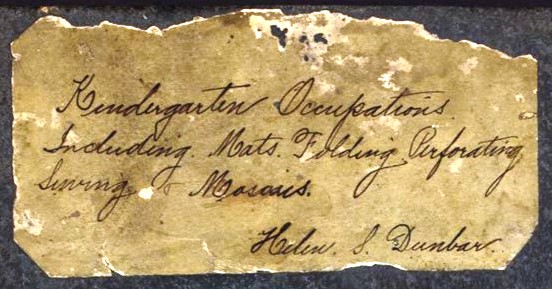 Kindergarten Occupations
Including. Mats. Folding, Perforating
Sewing & Mosaics.
Helen. S. Dunbar.